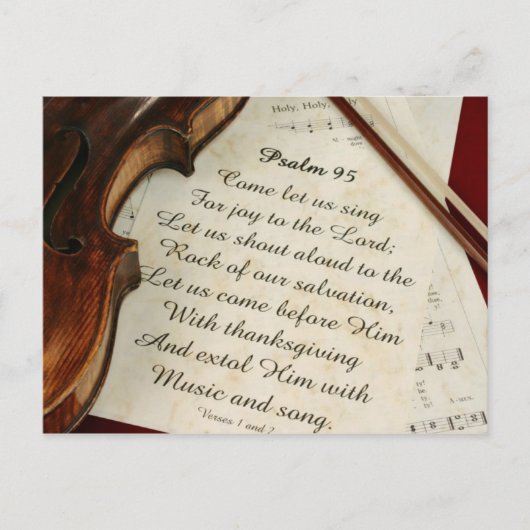 Holy, Holy, Holy
Al - might
Psalm 95
Come let us sing
For joy to the Lord;
Let us shout aloud to the
Rock of our salvation,
Let us come before Him
With thanksgiving
And extol Him with
Music and song.
Verses 1 and 2
ty!
ty!
A - MEN.